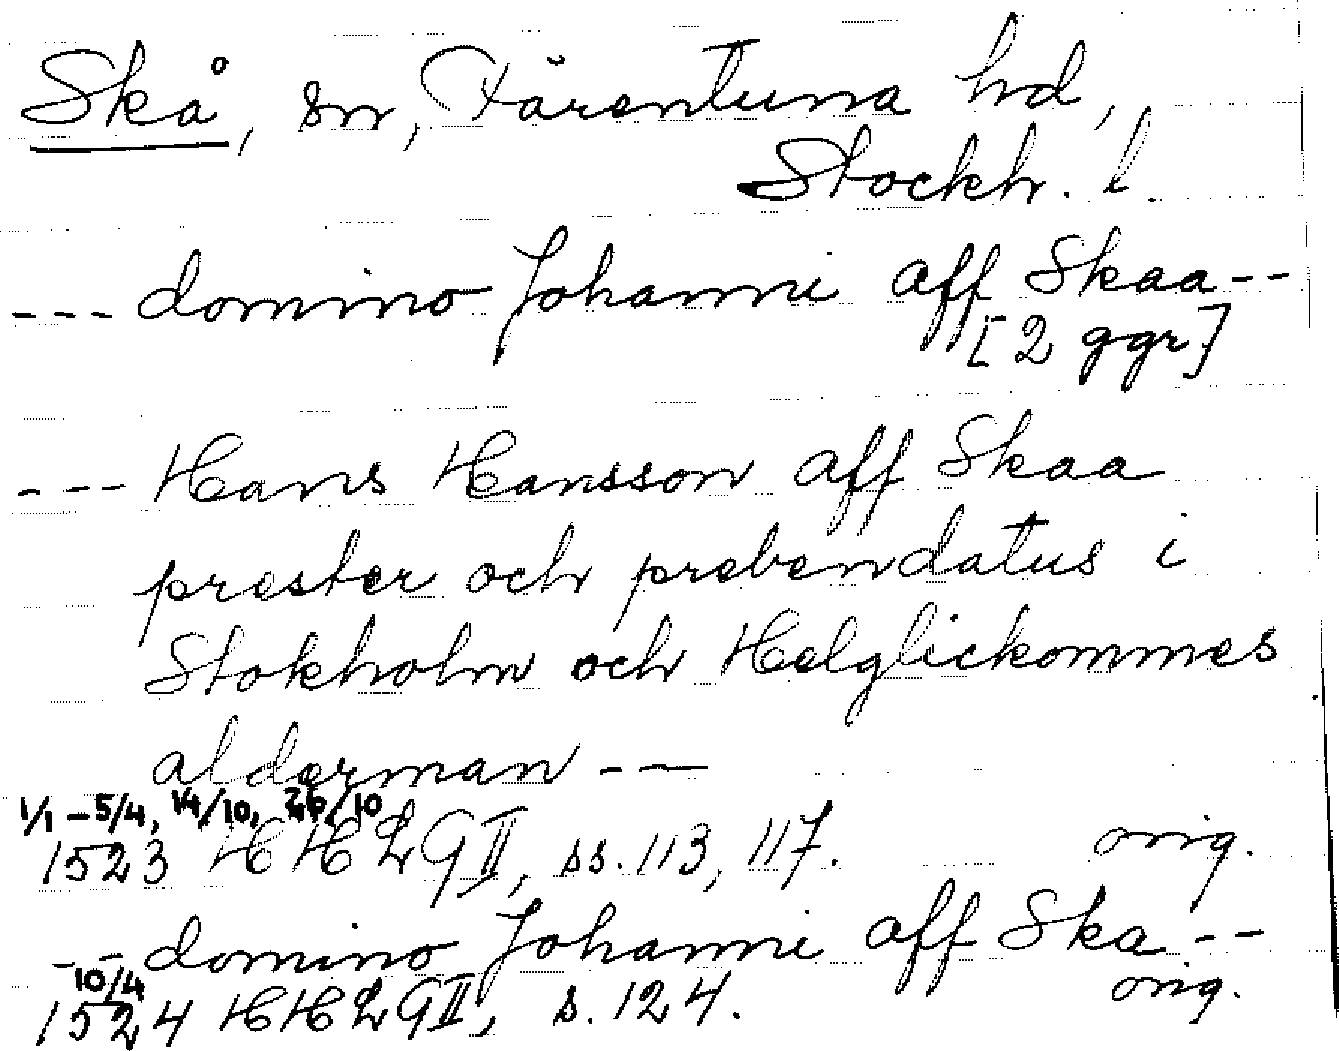 Skå, sn, Färentuna hd,
Stockh. l.
--- domino Johanni aff Skaa --
[2 ggr]
--- Hans Hansson aff Skaa
prester och prebendatus i
Stokholm och Helglickommes
alderman --
1/1 - 5/4, 14/10, 26/10
1523 HHLG II, ss. 113, 117. orig.
-- domino Johanni aff Ska --
10/4
1524 HHLG II, s. 124. orig.